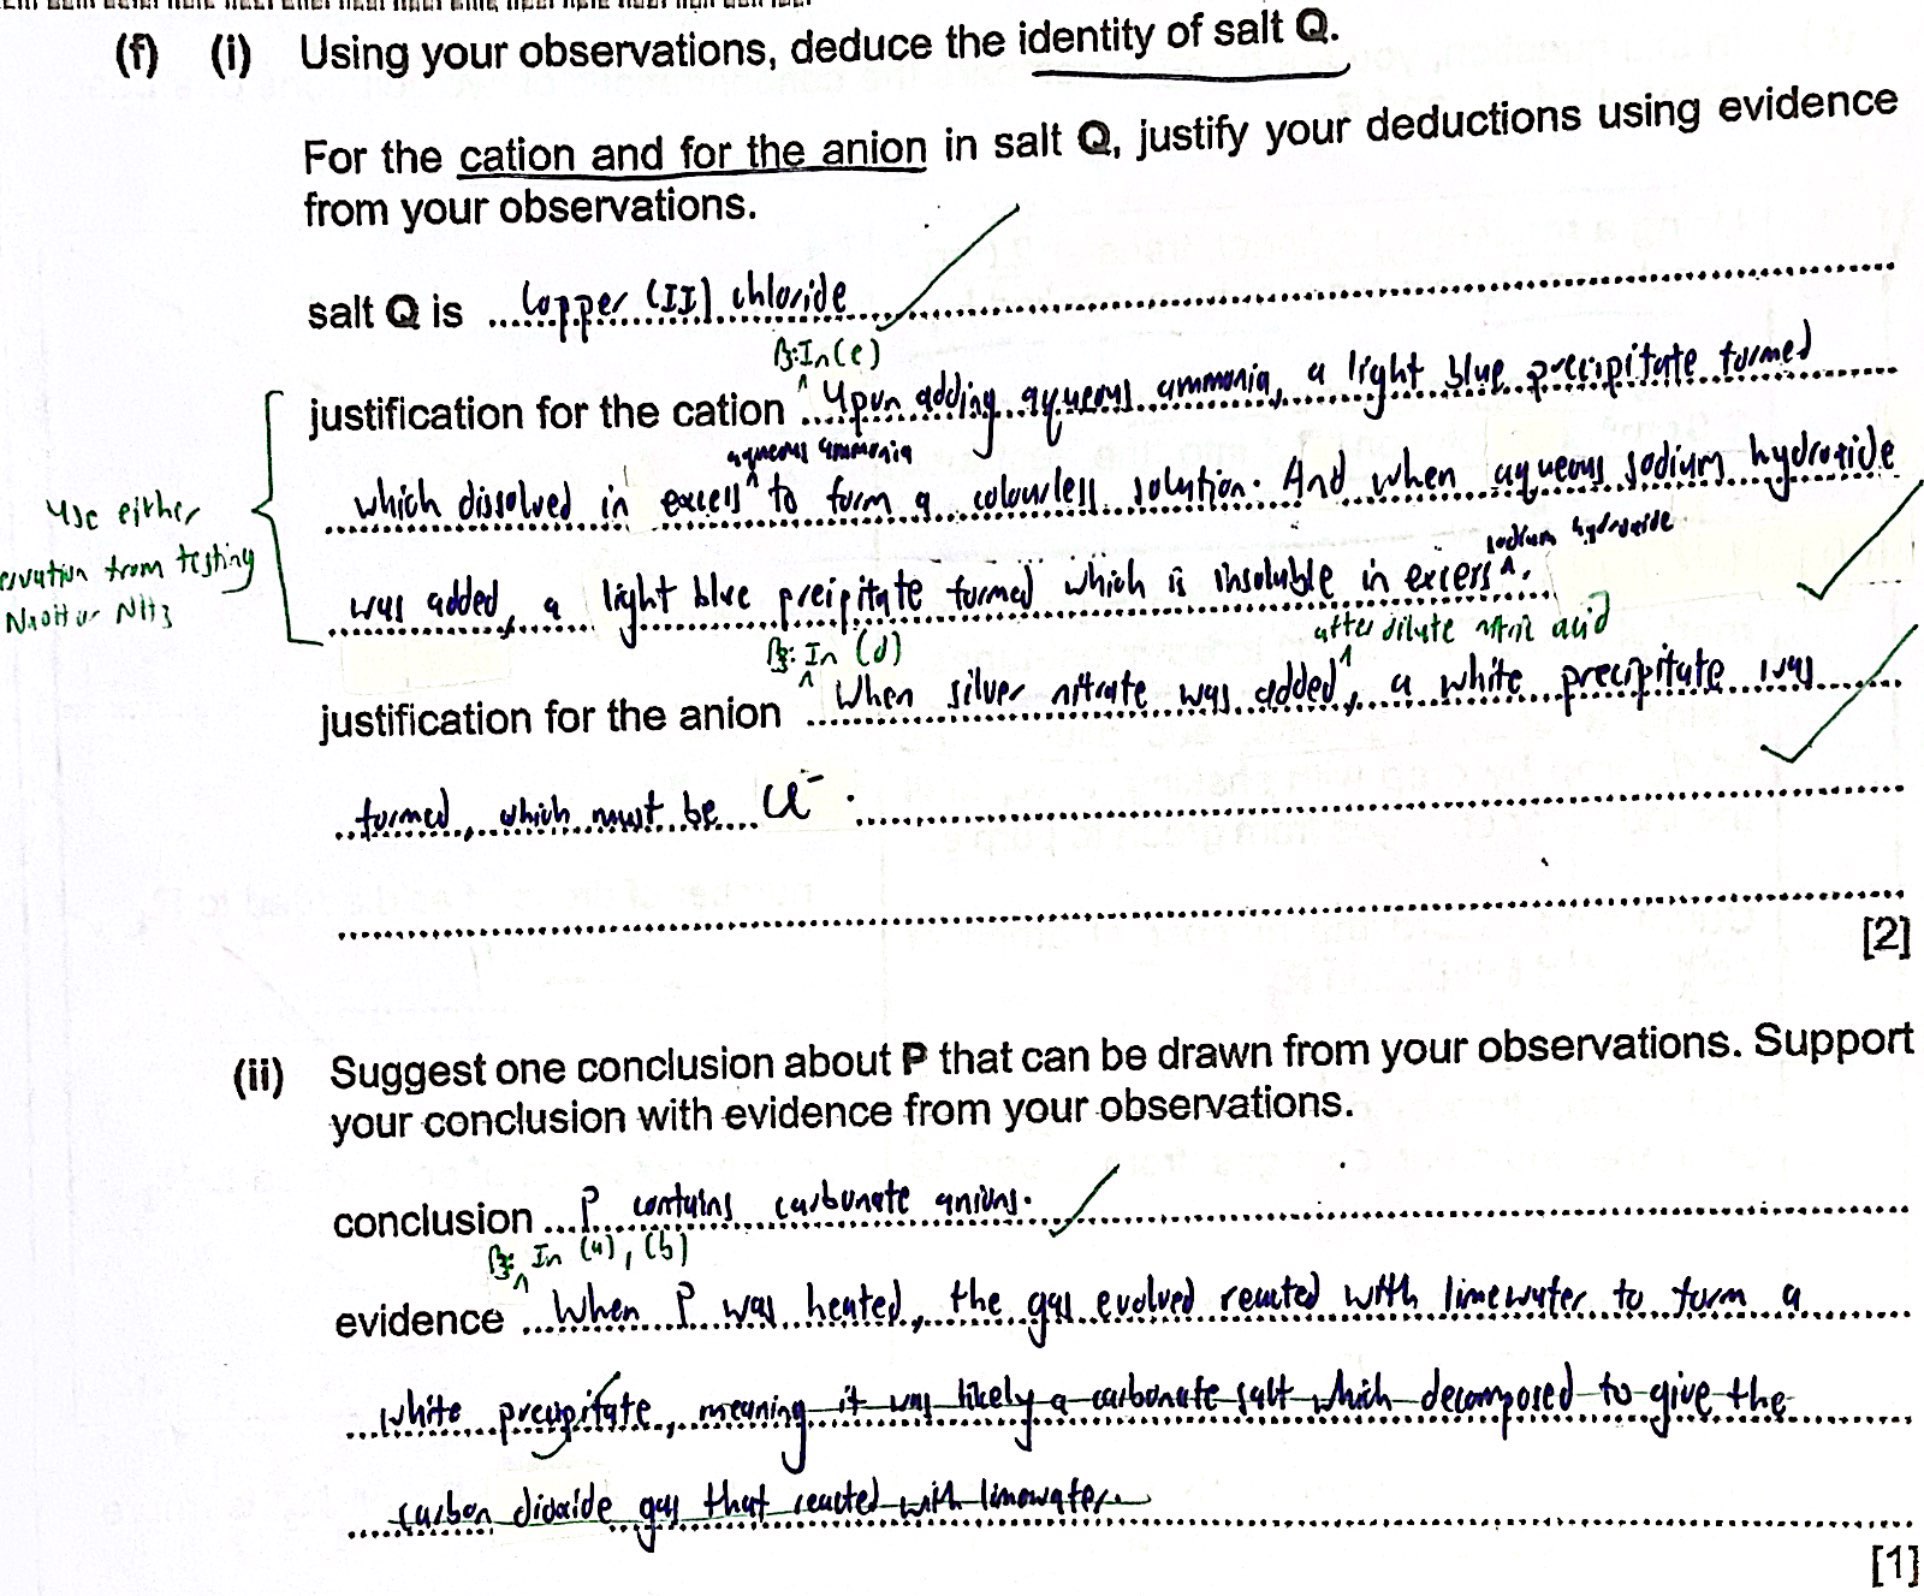 (f) (i) Using your observations, deduce the identity of salt Q.
For the cation and for the anion in salt Q, justify your deductions using evidence
from your observations.
salt Q is Copper (II) chloride
In (e)
justification for the cation Upon adding aqueous ammonia, a light blue precipitate formed
aqueous ammonia
which dissolved in excess to form a colourless solution. And when aqueous sodium hydroxide
sodium hydroxide
was added, a light blue preipitate formed which is insoluble in excess.
use either
from testing
NaOH or NH3
after dilute nitric acid
In (d)
justification for the anion When silver nitrate was added, a white precipitate was
formed, which must be Cl⁻.
[2]
(ii) Suggest one conclusion about P that can be drawn from your observations. Support
your conclusion with evidence from your observations.
conclusion P contains carbonate anions.
In (a), (b)
evidence When P was heated, the gas evolved reacted with limewater to form a
white precipitate, meaning it was likely a carbonate salt which decomposed to give the
carbon dioxide gas that reacted with limewater.
[1]